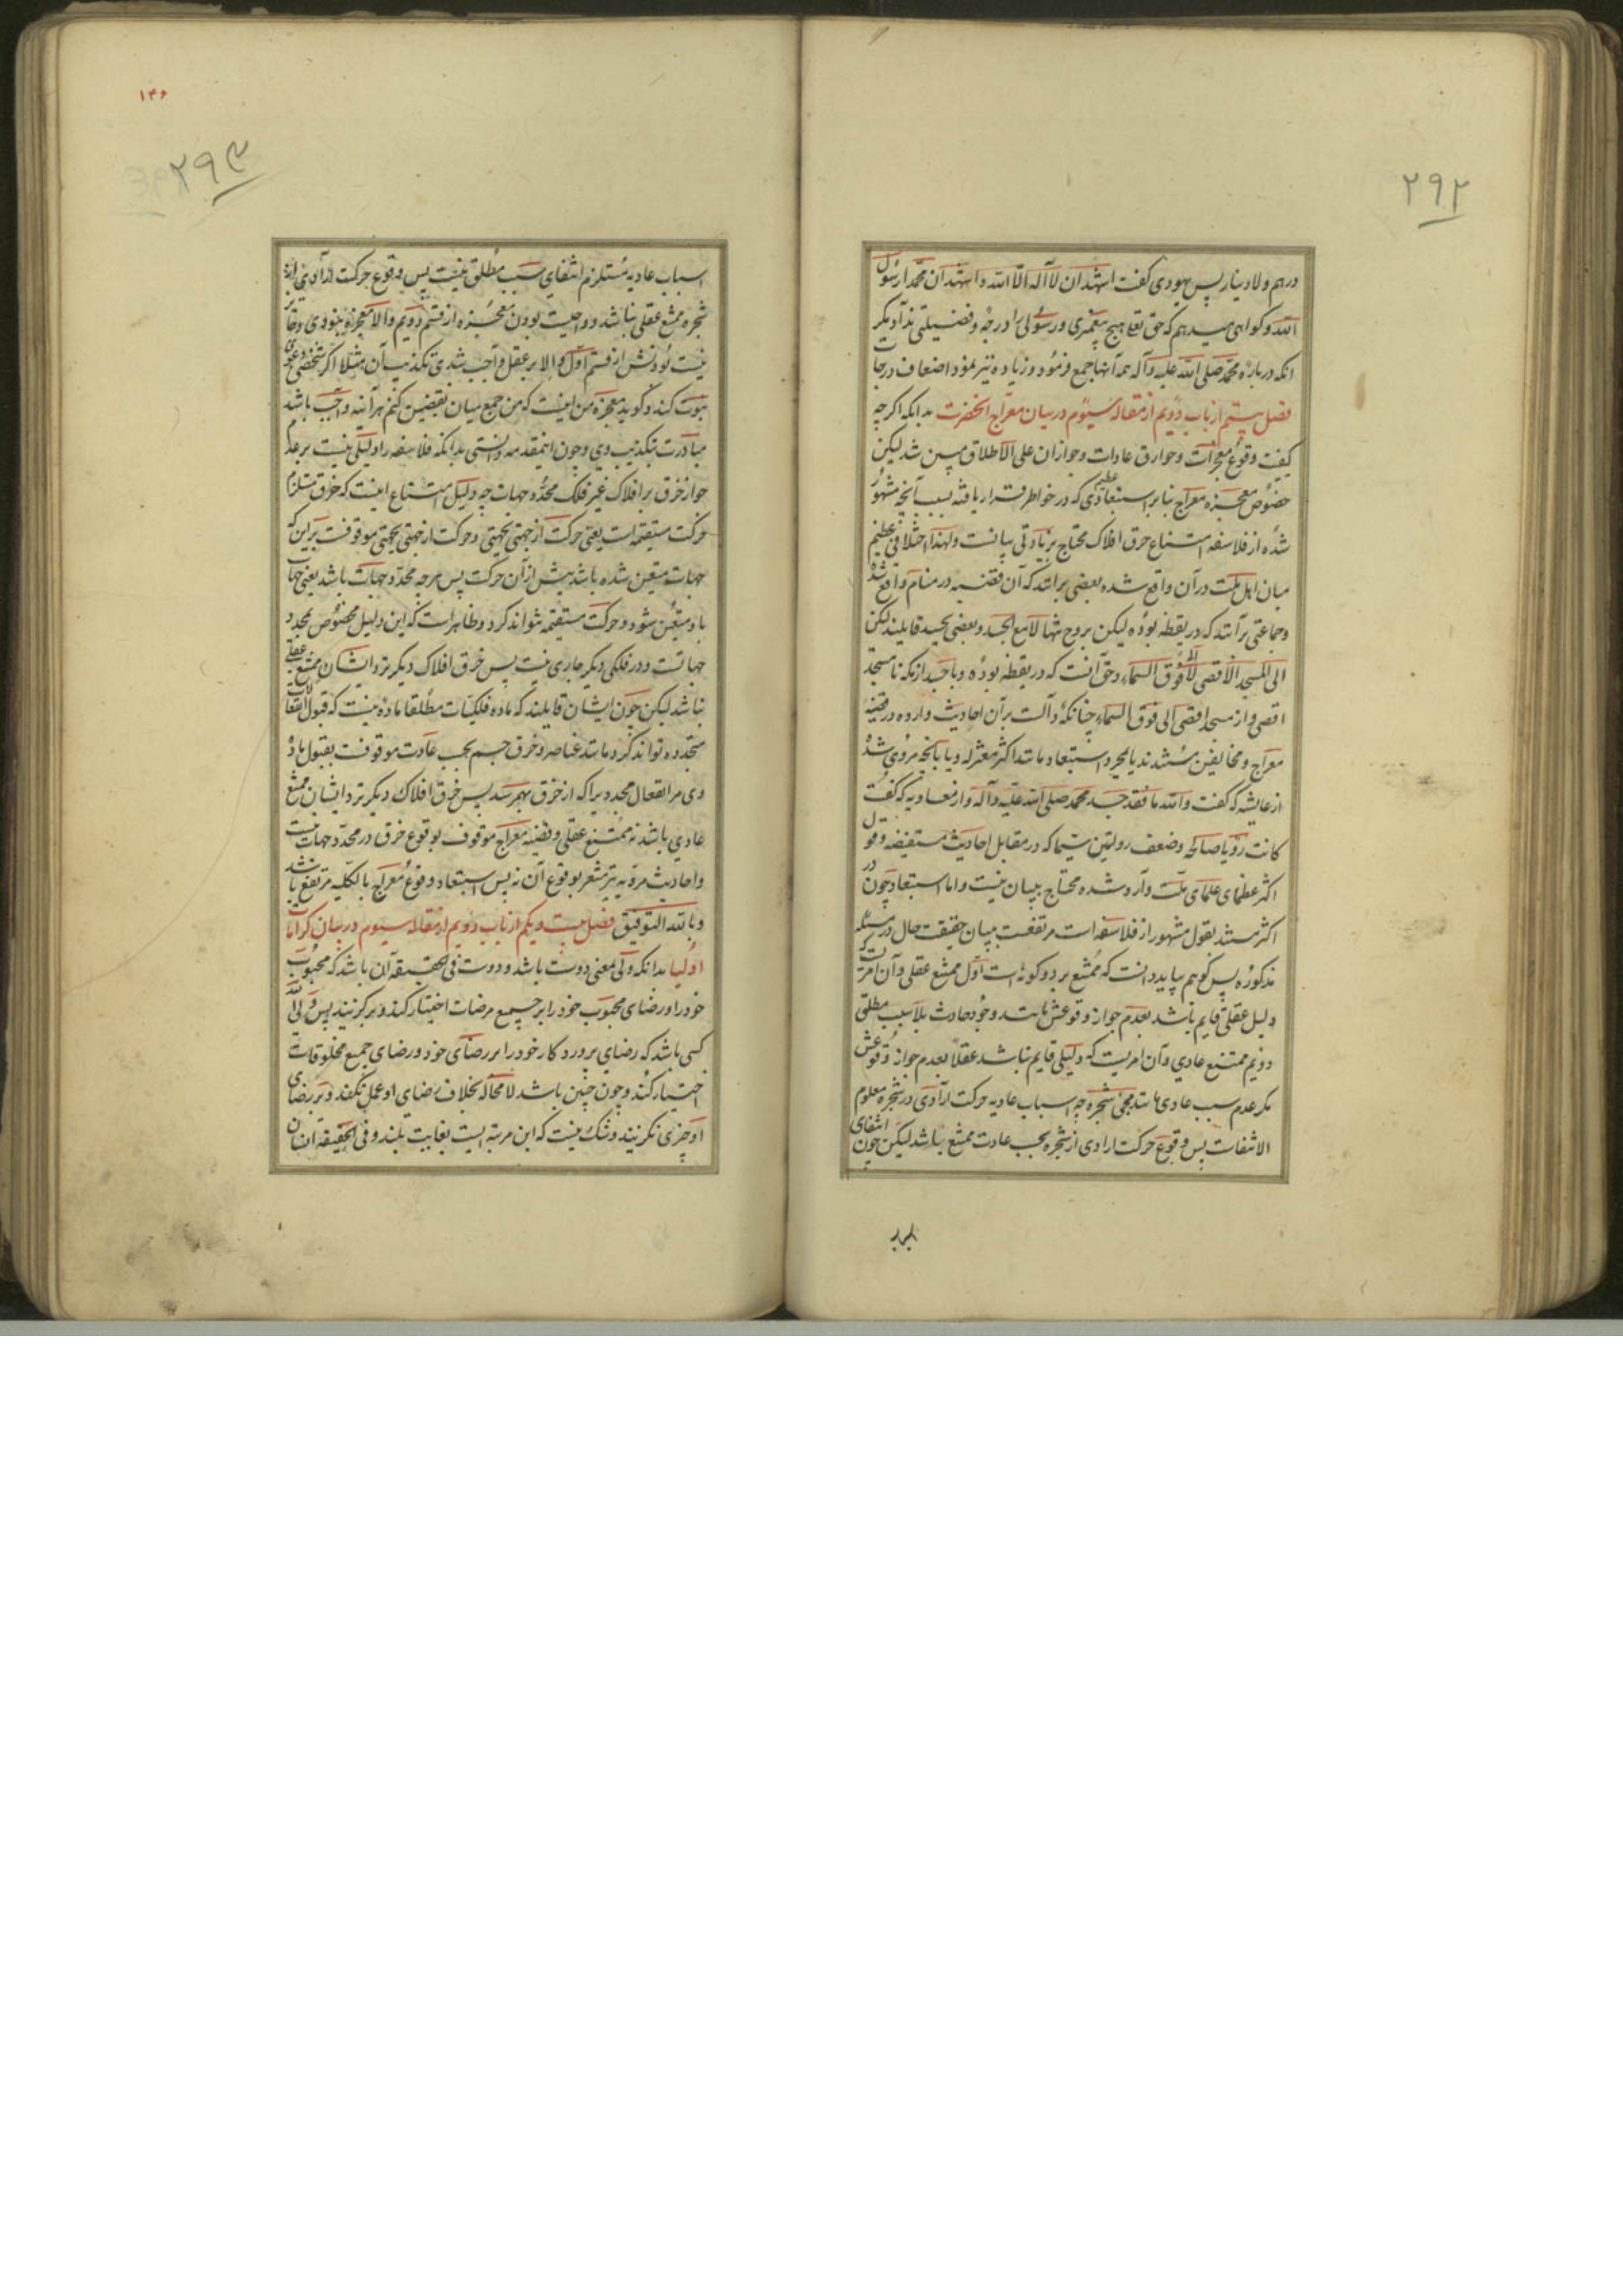 ۲۹۲
درهم ولا دینار پس یهودی گفت اشهد ان لا اله الا الله و اشهد ان محمدا رسول
الله و کواهی میدهم که حق تعالی هیچ پیغمبری و رسولی را درجهٔ و فضیلتی نداد مکر
انکه درباره محمد صلی الله علیه و آله همه آنها جمع فرمود و زیاده نیز نمود اضعاف درجات
فصل بیستم از باب دویم از مقاله سیوم در بیان معراج انحضرت بدانکه اکرچه
کیفیت وقوع معجزات و خوارق عادات و جواز ان علی الاطلاق مبین شد لیکن
خصوص معجزه معراج بنابر استبعادی عظیم که در خواطر قرار یافته بسبب آنچه مشهور
شده از فلاسفه امتناع خرق افلاک محتاج بزیادتی بیانست و لهذا اختلافی عظیم
میان اهل ملت در آن واقع شده بعضی برانند که آن قضیه در منام واقع شد
و جماعتی برآنند که در یقظه بوده لیکن بروح تنها لا مع الجسد و بعضی بجسد قایلند لکن
الی المسجد الاقصی لا الی فوق السماء و حق آنست که در یقظه بوده و با جسد از مکه تا مسجد
اقصی و از مسجد اقصی الی فوق السماء چنانکه دالست بر آن احادیث وارده در قضیه
معراج و مخالفین مستندند یا بمجرد استبعاد مانند اکثر معتزله و یا بآنچه مروی شده
از عایشه که گفت والله ما فقد جسد محمد صلی الله علیه و آله و از معاویه که گفت
کانت رؤیا صالحة و ضعف روایتین سیما که در مقابل احادیث مستفیضه و قول
اکثر عظمای علمای ملت وارد شده محتاج ببیان نیست و اما استبعاد چون در
اکثر مستند بقول مشهور از فلاسفه است مرتفعست ببیان حقیقت حال در مسئله
مذکوره پس کوییم بباید دانست که ممتنع بر دو کونه است اول ممتنع عقلی و آن امریست که
دلیل عقلی قایم باشد بعدم جواز وقوعش مانند وجود حادث بلا سبب مطلق
دویم ممتنع عادی و آن امریست که دلیلی قایم نباشد عقلاً بعدم جواز وقوعش
مکر عدم سبب عادی مانند مجئ شجره چه اسباب عادیه حرکت ارادی در شجره معلوم
الانتفاست پس وقوع حرکت ارادی از شجره بحسب عادت ممتنع باشد لیکن چون انتفای
۱۴۶
۲۹۳
اسباب عادیه مستلزم انتفای سبب مطلق نیست پس وقوع حرکت ارادی از
شجره ممتنع عقلی نباشد و واجبست بودن معجزه از قسم دویم والا معجزه نبودی و جایز
نیست بودنش از قسم اول والا بر عقل واجب شدی تکذیب آن مثلا اکر شخصی دعوی
نبوت کند و کوید معجزه من اینست که من جمع میان نقیضین کنم هرآینه واجب باشد
مبادرت بتکذیب وی و چون اینمقدمه دانستی بدانکه فلاسفه را دلیلی نیست بر عدم
جواز خرق بر افلاک غیر فلک محدد جهات چه دلیل امتناع اینست که خرق مستلزم
حرکت مستقیمه است یعنی حرکت از جهتی بجهتی و حرکت از جهتی بجهتی موقوفست بر این که
جهات متعین شده باشد پیش از آن حرکت پس هرچه محدد جهات باشد یعنی جهات
باو متعین شود و حرکت مستقیمه نتواند کرد و ظاهر است که این دلیل مخصوص محدد
جهاتست و در فلکی دیگر جاری نیست پس خرق افلاک دیکر نزد ایشان ممتنع عقلی
نباشد لیکن چون ایشان قایلند که ماده فلکیات مطلقا ماده نیست که قبول انفعالات
متجدده تواند کرد مانند عناصر و خرق جسم بحسب عادت موقوفست بقبول ماده
وی مر انفعال مجددیرا که از خرق بهم رسد پس خرق افلاک دیکر نزد ایشان ممتنع
عادی باشد نه ممتنع عقلی و قضیه معراج موقوف بوقوع خرق در محدد جهات نیست
و احادیث مرویه نیز مشعر بوقوع آن نه پس استبعاد وقوع معراج بالکلیه مرتفع باشد
و بالله التوفیق فصل بیست و یکم از باب دویم از مقاله سیوم در بیان کرامات
اولیا بدانکه ولی بمعنی دوست باشد و دوست فی الحقیقه آن باشد که محبوب
خود را و رضای محبوب خود را بر جمیع مرضات اختیار کند و برکزیند پس ولی الله
کسی باشد که رضای پروردکار خود را بر رضای خود و رضای جمیع مخلوقات
اختیار کند و چون چنین باشد لا محاله بخلاف رضای او عمل نکند و بر رضای
او چیزی نکزیند و شک نیست که این مرتبه ایست بغایت بلند و فی الحقیقه انسان